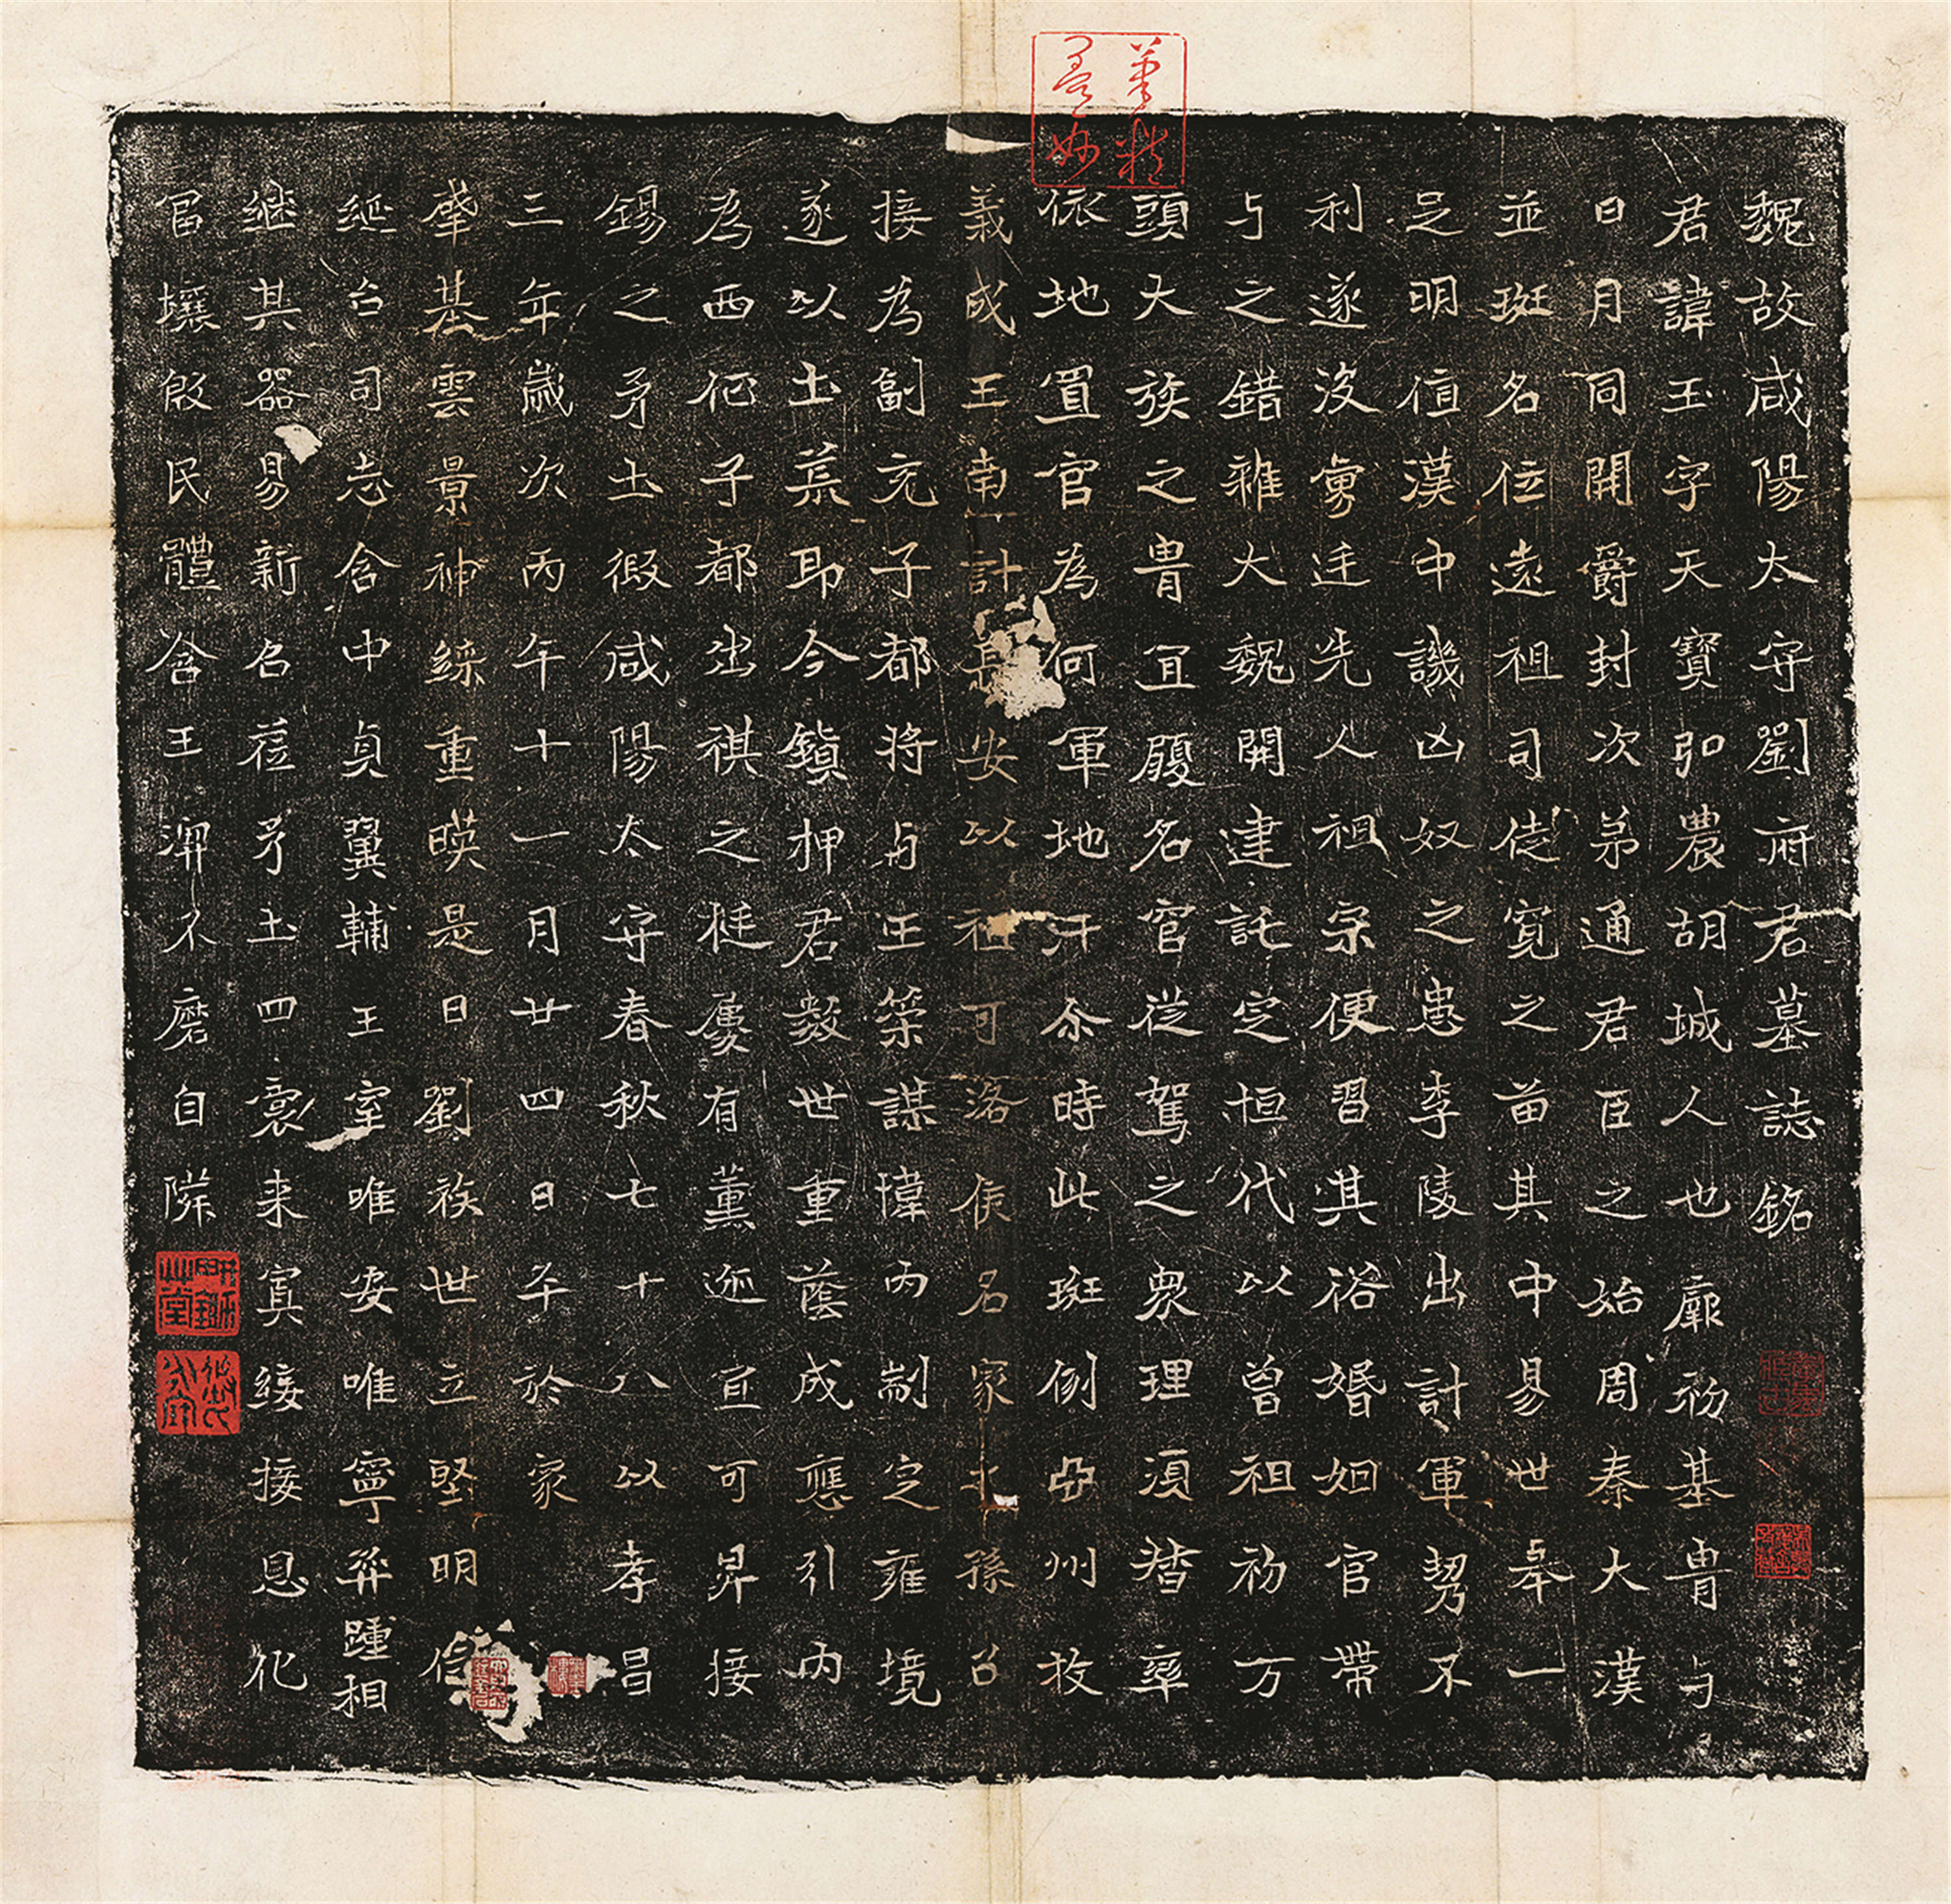 魏故咸陽太守劉府君墓誌銘
君諱玉字天寶弘農胡城人也厥初基胄与
日月同開爵封次弟通君臣之始周秦大漢
並班名位遠祖司徒寬之苗其中易世舉一
足明值漢中譏凶奴之患李陵出計軍勢不
利遂沒虜廷先人祖宗便習其俗婚姻官帶
与之錯雜大魏開建託定恒代以曾祖初万
頭大族之胄宜履名官從駕之衆理須督率
依地置官為何渾地汗尒時此班例亞州牧
義成王南討長安以祖可洛侯名家之孫召
接為副充子都将与王築謀瑋內制之雍境
遂以土荒耶今鎮押君數世重蔭成應引內
為西征子都出祺之梃屢有薰迹宜可昇接
錫之矛土假咸陽太守春秋七十八以孝昌
三年歲次丙午十一月廿四日卒於家
肇基雲景神綵重暎是日劉族世立堅明
綖台司志含中貞翼輔王室唯安唯寧弈踵相
繼其器易新名蒞矛土四裏来賓綏接息化
畱壤啟民體含王澤不磨自隣